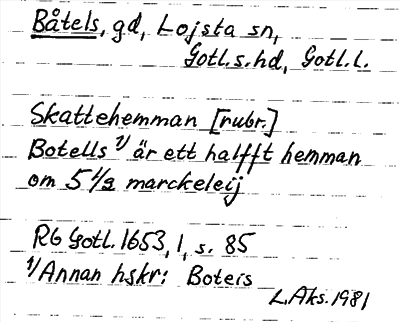 Båtels, gd, Lojsta sn,
Gotl.s.hd, Gotl.l.
Skattehemman [rubr.]
Botells 1/ är ett halfft hemman
om 5 1/2 marckeleij
RG Gotl. 1653, 1, s. 85
1/ Annan hskr: Boteis
L.Aks. 1981